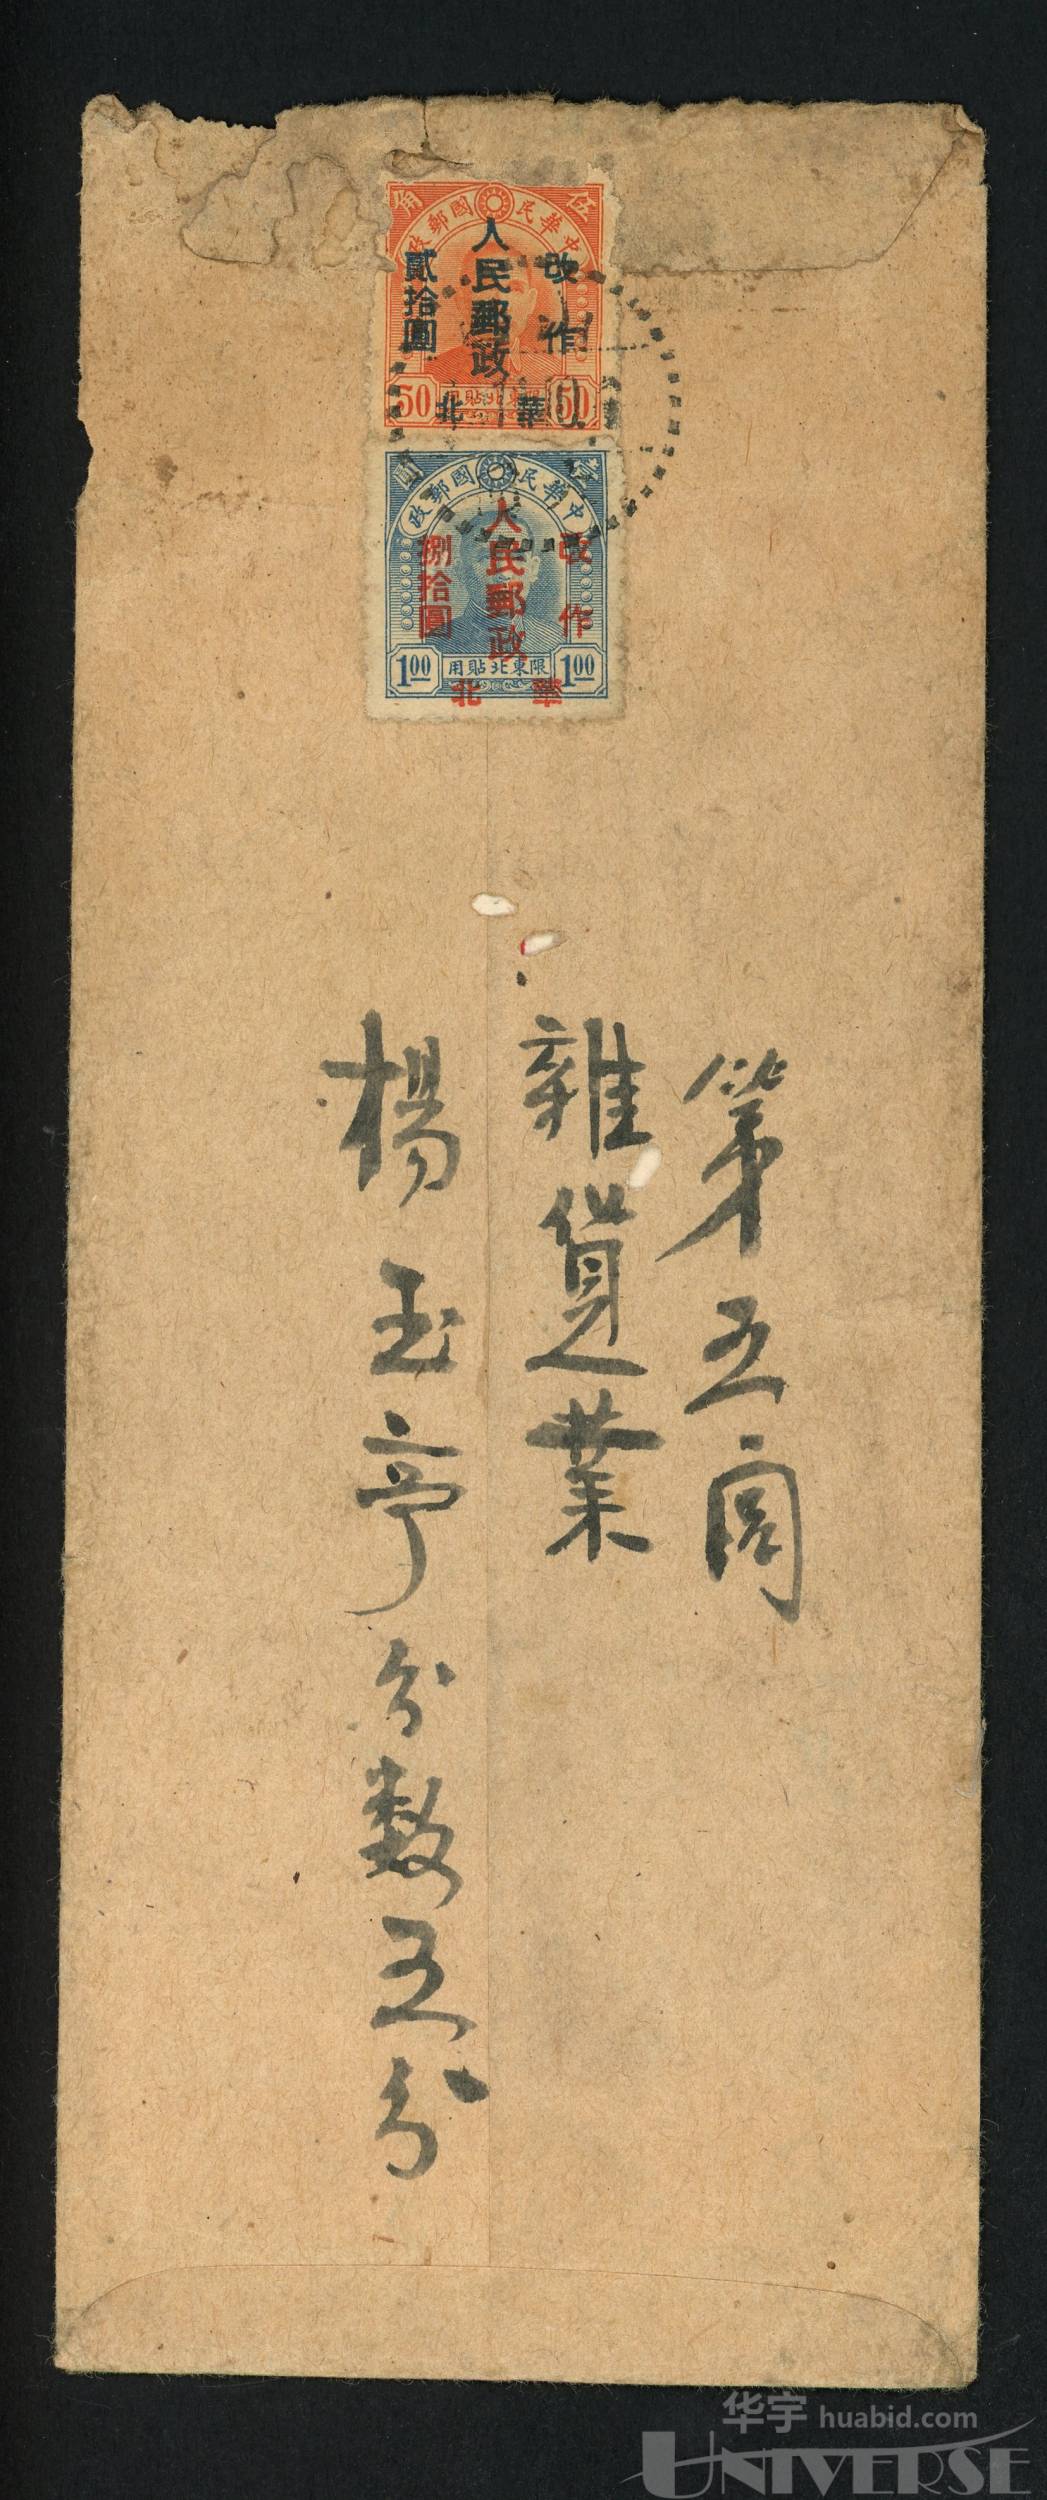 伍 角
中華民國郵政
改作
人民郵政
貳拾圓
50 限東北貼用 50
華北
壹 圓
中華民國郵政
改作
人民郵政
捌拾圓
1.00 限東北貼用 1.00
華北
第五閭
雜貨業
楊玉亭分數五分
华宇 huabid.com
UNIVERSE